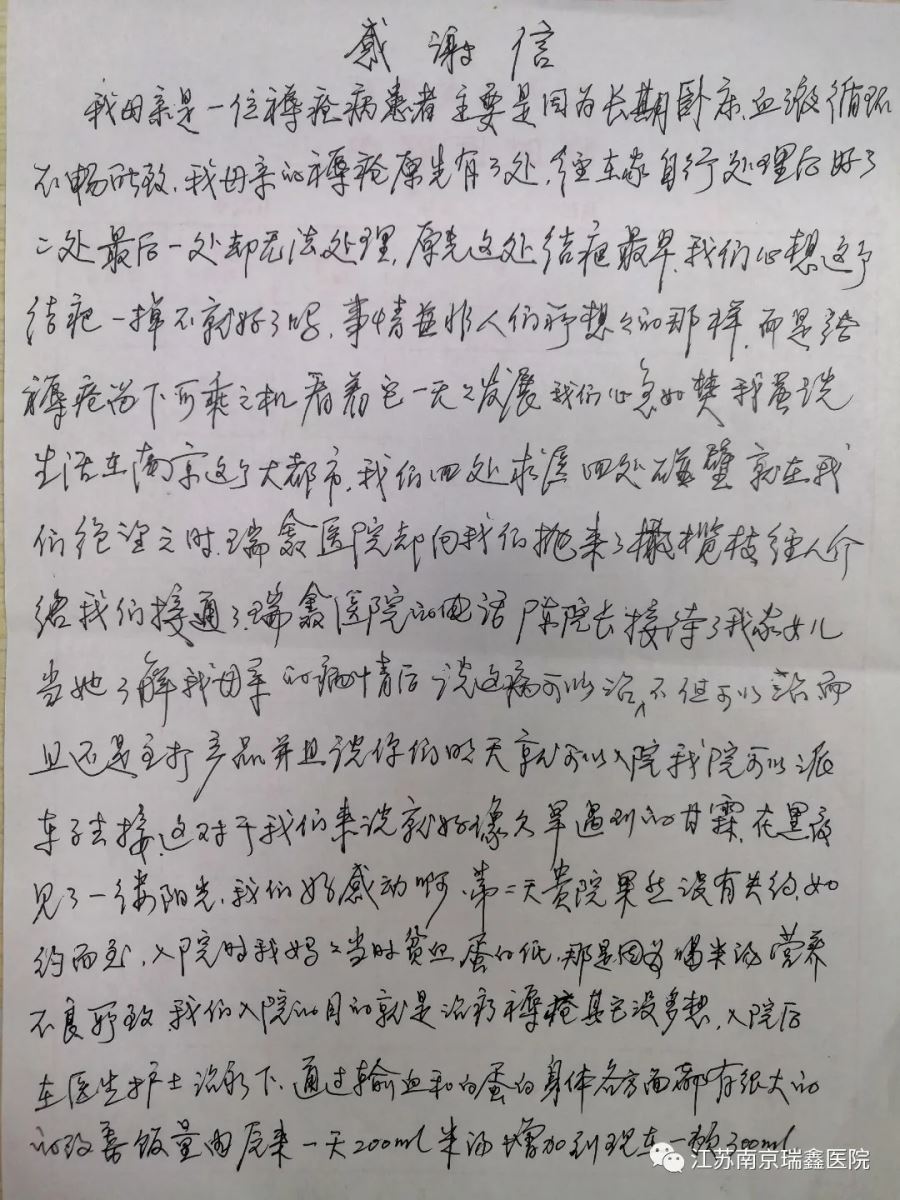 感谢信
我母亲是一位褥疮病患者主要是因为长期卧床,血液循环
不畅所致,我母亲的褥疮原先有3处,经在家自行处理后好了
二处最后一处却无法处理,原先这处结疤最早,我们心想这个
结疤一掉不就好了吗,事情并非人们所想像的那样,而是给
褥疮留下可乘之机看着它一天天发展我们心急如焚我虽说
生活在南京这个大都市,我们四处求医四处碰壁就在我
们绝望之时,瑞鑫医院却向我们抛来了橄榄枝经人介
绍我们接通了瑞鑫医院的电话陈院长接待了我家女儿
当她了解我母亲的病情后说这病可以治,不但可以治而
且还是主打产品并且说你们明天就可以入院我院可以派
车子去接,这对于我们来说就好像久旱遇到的甘霖,在黑夜
见了一缕阳光,我们好感动啊,第二天贵院果然没有失约,如
约而至,入院时我妈妈当时贫血蛋白低,那是因为喝米汤营养
不良所致,我们入院的目的就是治疗褥疮其它没多想,入院后
在医生护士治疗下,通过输血和白蛋白身体各方面都有很大的
的改善饭量由原来一天200ml米汤增加到现在一顿300ml
江苏南京瑞鑫医院